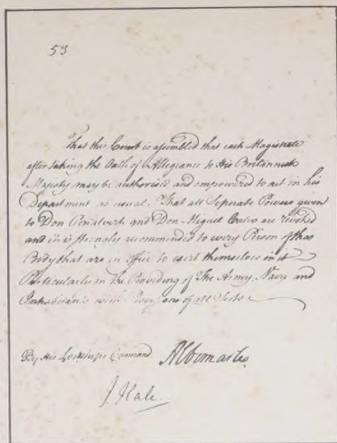 53
That this Court is assembled that each Magistrate
after taking the Oath of Allegiance to His Britannick
Majesty may be authorised and empowered to act in his
Department as usual. That all Seperate Powers given
to Don and Don Miguel Calvo are revoked
and it is strongly recommended to every Person of that
Body that are in office to exert themselves in it
Particularly in the Providing of The Army, Navy and
Inhabitants with Provisions of all Sorts
By His Lordships Command Albemarle
J. Hale